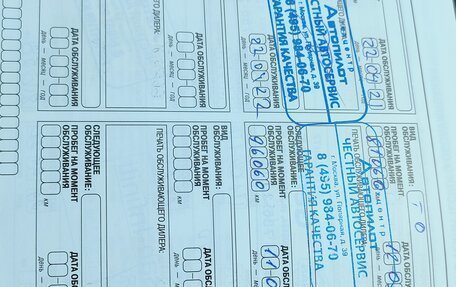 ДАТА ОБСЛУЖИВАНИЯ
22 09 21
ДЕНЬ — МЕСЯЦ — ГОД
Автопилот
ЧЕСТНЫЙ АВТОСЕРВИС
г. Москва, ул. Полярная, д. 39
8 (495) 984-06-70
ГАРАНТИЯ КАЧЕСТВА
ДАТА ОБСЛУЖИВАНИЯ
22 09 22
ДЕНЬ — МЕСЯЦ — ГОД
ДАТА ОБСЛУЖИВАНИЯ
ДЕНЬ — МЕСЯЦ — ГОД
ВИД
ОБСЛУЖИВАНИЯ:
ТО
ПРОБЕГ НА МОМЕНТ
ОБСЛУЖИВАНИЯ
КМ
ПЕЧАТЬ ОБСЛУЖИВАЮЩЕГО ДИЛЕРА:
Автопилот
ЧЕСТНЫЙ АВТОСЕРВИС
г. Москва, ул. Полярная, д. 39
8 (495) 984-06-70
ГАРАНТИЯ КАЧЕСТВА
СЛЕДУЮЩЕЕ
ОБСЛУЖИВАНИЕ:
ПРОБЕГ НА МОМЕНТ
ОБСЛУЖИВАНИЯ
96060 КМ
ДАТА ОБСЛУЖИВАНИЯ
ДЕНЬ —
ВИД
ОБСЛУЖИВАНИЯ:
ПРОБЕГ НА МОМЕНТ
ОБСЛУЖИВАНИЯ
КМ
ДАТА ОБСЛУЖИВАНИЯ
ДЕНЬ — МЕСЯЦ
ПЕЧАТЬ ОБСЛУЖИВАЮЩЕГО ДИЛЕРА:
СЛЕДУЮЩЕЕ
ОБСЛУЖИВАНИЕ:
ПРОБЕГ НА МОМЕНТ
ОБСЛУЖИВАНИЯ
КМ
ДАТА ОБСЛУЖИВАНИЯ
ДЕНЬ — МЕСЯЦ